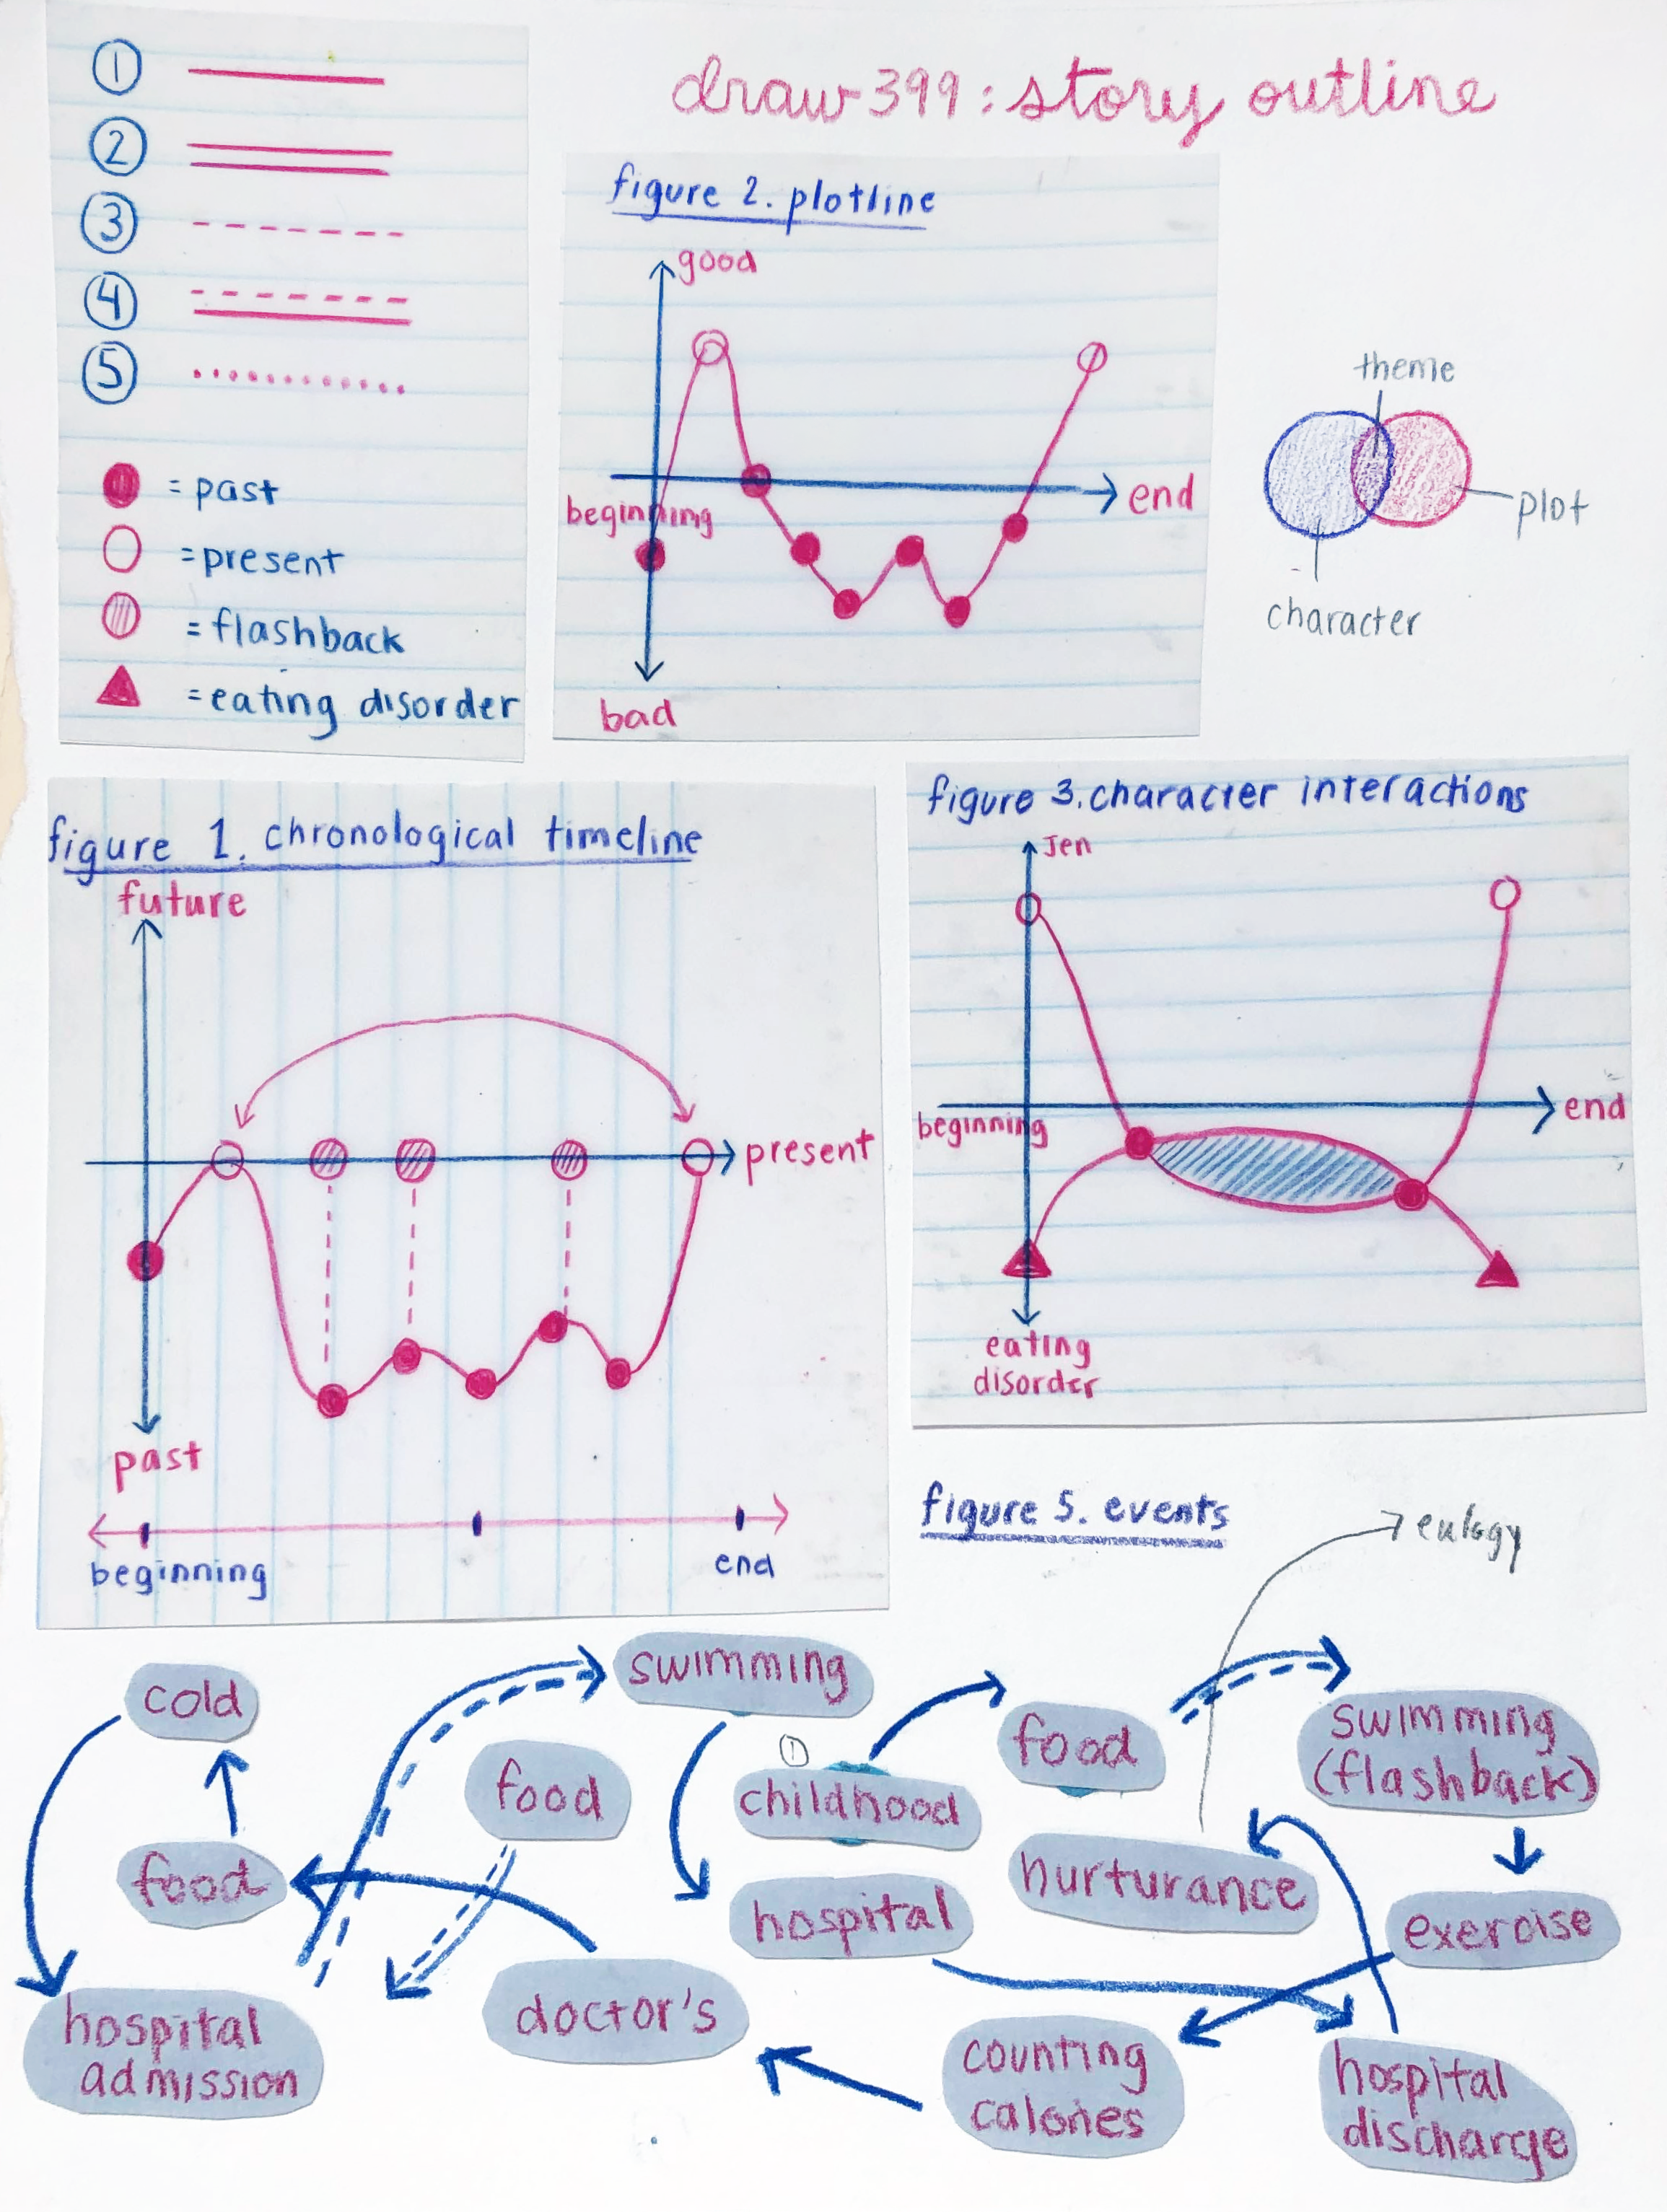 draw 399: story outline
1
2
3
4
5
= past
= present
= flashback
= eating disorder
figure 2. plotline
good
beginning
end
bad
theme
plot
character
figure 1. chronological timeline
future
present
past
beginning
end
figure 3. character interactions
Jen
beginning
end
eating
disorder
figure 5. events
eulogy
cold
swimming
food
1
childhood
food
swimming
(flashback)
food
hospital
nurturance
exercise
hospital
admission
doctor's
counting
calories
hospital
discharge